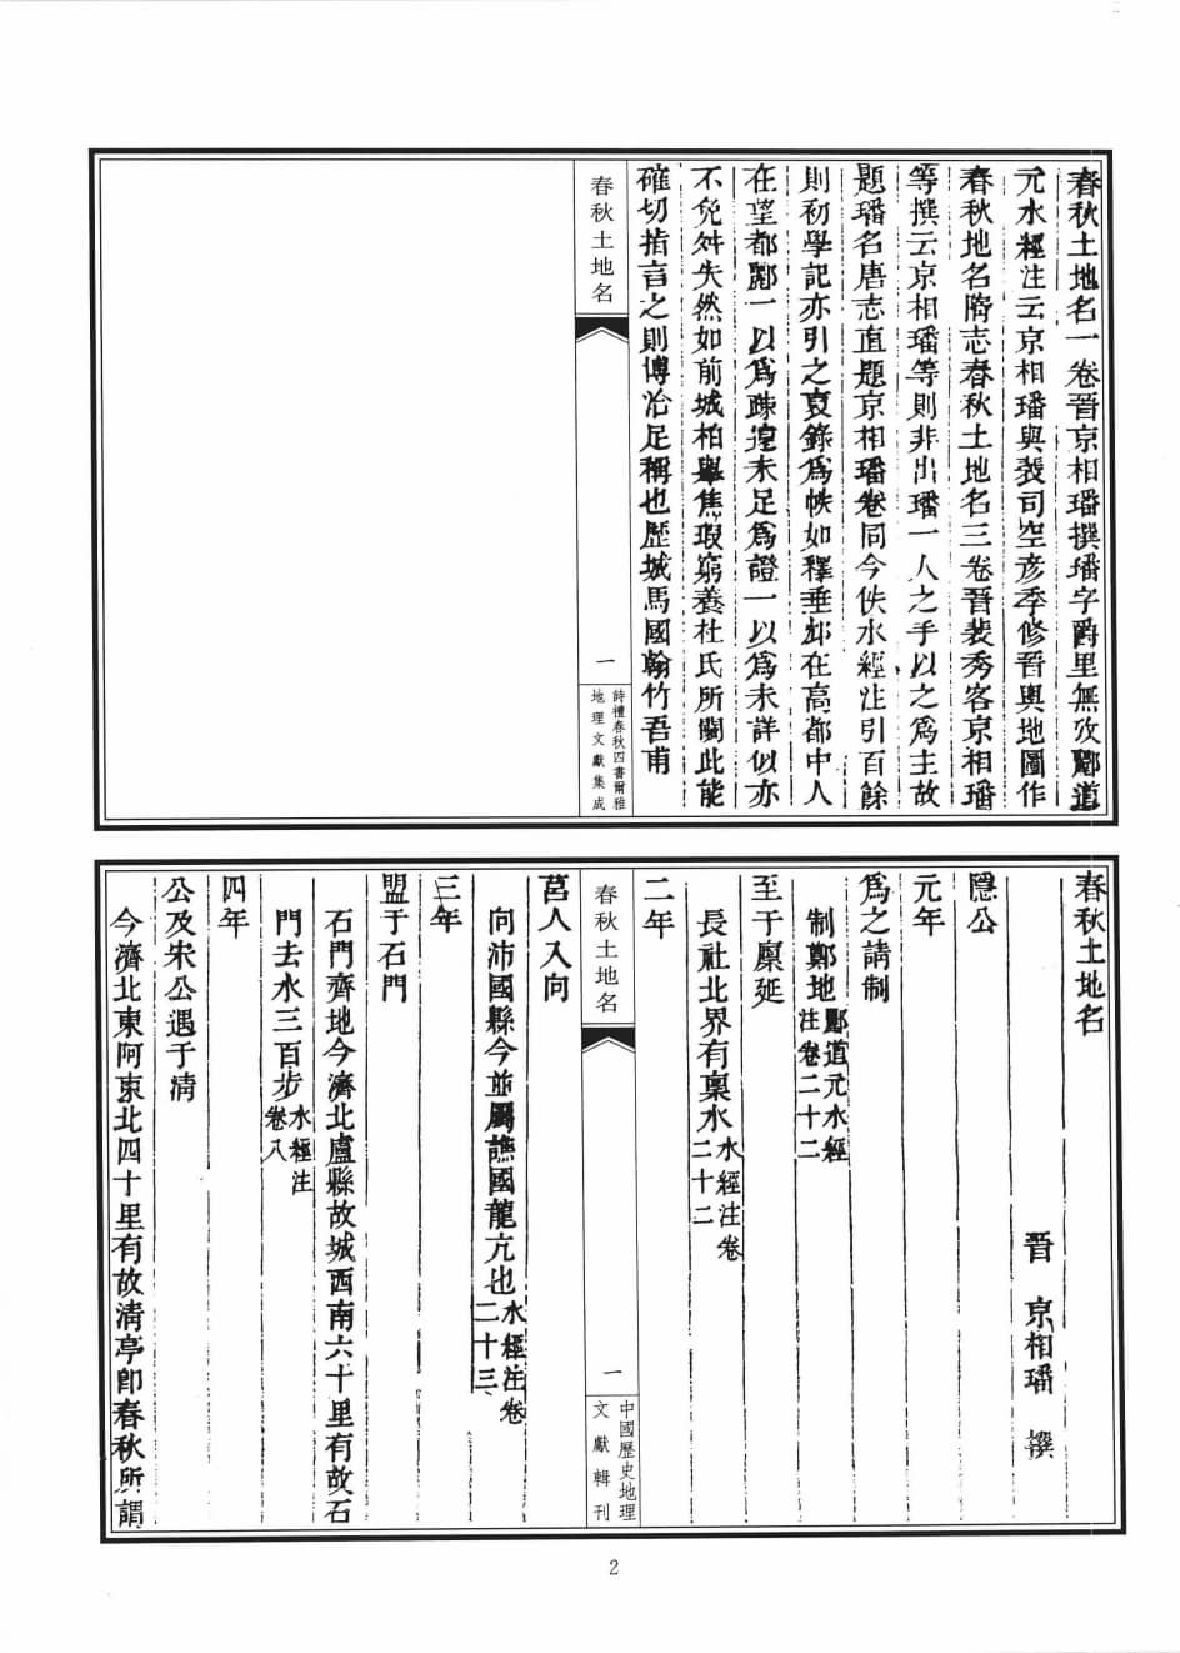 春秋土地名一卷晉京相璠撰璠字爵里無攷酈道
元水經注云京相璠與裴司空彥季修晉輿地圖作
春秋地名隋志春秋土地名三卷晉裴秀客京相璠
等撰云京相璠等則非出璠一人之手以之爲主故
題璠名唐志直題京相璠卷同今佚水經注引百餘
則初學記亦引之裒錄爲帙如釋垂邺在高都中人
在望都鄾一以爲疎遑未足爲證一以爲未詳似亦
不免舛失然如前城柏舉焦瑕窮養杜氏所闕此能
確切指言之則博洽足稱也歷城馬國翰竹吾甫
春秋土地名
一
詩禮春秋四書爾雅
地理文獻集成
春秋土地名
晉 京相璠 撰
隱公
元年
爲之請制
制鄭地酈道元水經
注卷二十二
至于廩延
長社北界有稟水水經注卷
二十二
二年
春秋土地名
一
中國歷史地理
文獻輯刊
莒人入向
向沛國縣今並屬譙國龍亢也水經注卷
二十三
三年
盟于石門
石門齊地今濟北盧縣故城西南六十里有故石
門去水三百步水經注
卷八
四年
公及宋公遇于清
今濟北東阿東北四十里有故清亭卽春秋所謂
2